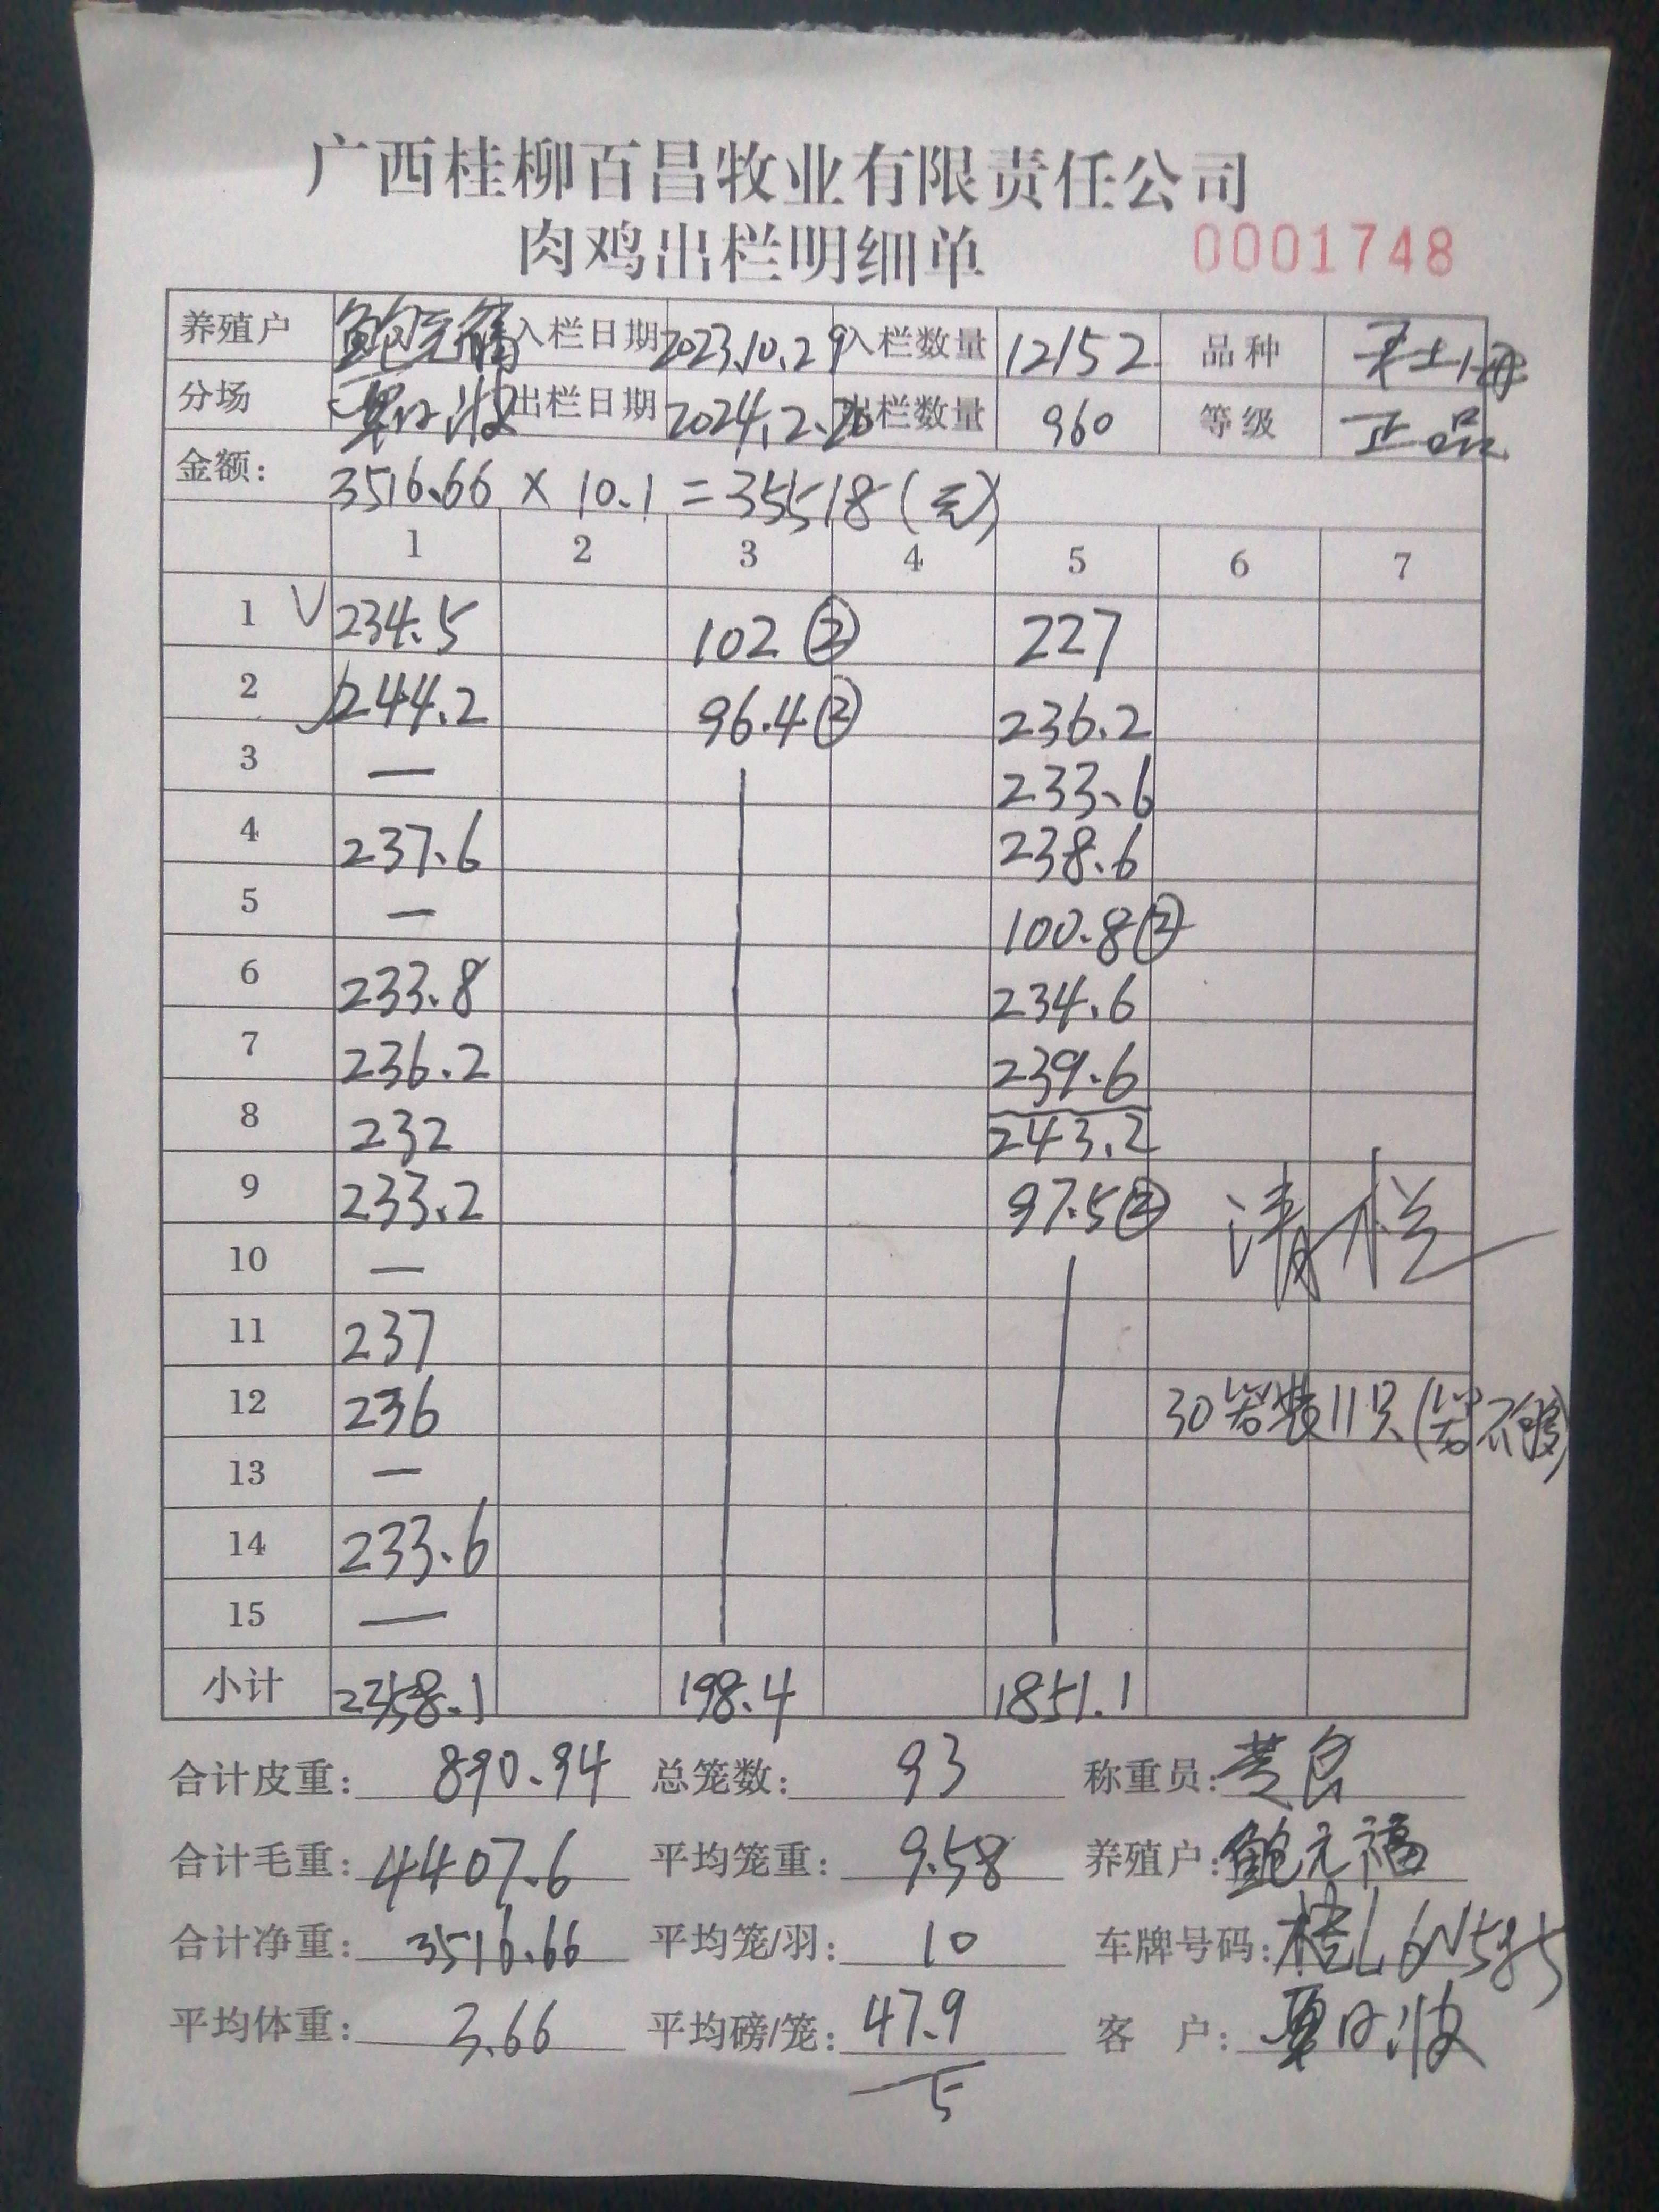 广西桂柳百昌牧业有限责任公司
肉鸡出栏明细单 0001748
养殖户 鲍元福 入栏日期 2023.10.29 入栏数量 12152 品种
分场 夏日波 出栏日期 2024.2.26 出栏数量 960 等级 正品
金额: 3516.66 × 10.1 = 35518(元)
1 2 3 4 5 6 7
1 √ 234.5 102 ② 227
2 √ 244.2 96.4 ② 236.2
3 — 233.6
4 237.6 238.6
5 — 100.8 ②
6 233.8 234.6
7 236.2 239.6
8 232 243.2
9 233.2 97.5 ② 清栏
10 —
11 237
12 236 30笼装11只(笼不够)
13 —
14 233.6
15 —
小计 2358.1 198.4 1851.1
合计皮重: 890.94 总笼数: 93 称重员:
合计毛重: 4407.6 平均笼重: 9.58 养殖户: 鲍元福
合计净重: 3516.66 平均笼/羽: 10 车牌号码: 桂L6N585
平均体重: 3.66 平均磅/笼: 47.9 客 户: 夏日波
5